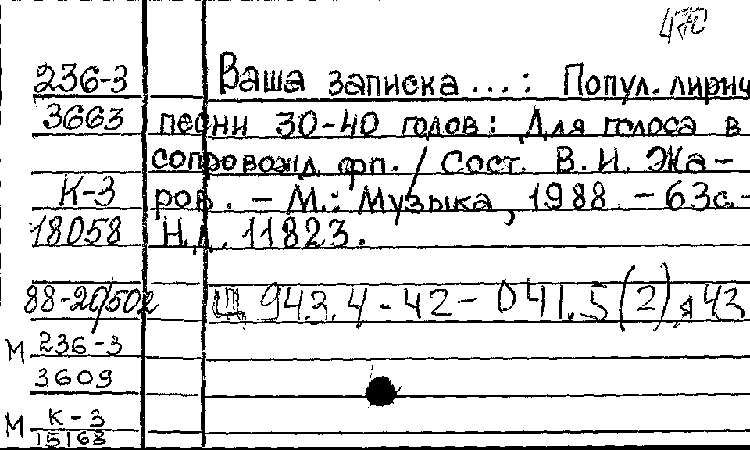 470
236-3 Ваша записка ...: Попул. лирич
3663 песни 30-40 годов: Для голоса в
сопровожд. фп. / Сост. В. И. Жа-
К-3 ров. - М.: Музыка, 1988. - 63с.-
18058 Н.д. 11823.
88-20502 Ц 943.4-42-041.5(2)я43
М 236-3
3609
М К-3
15168